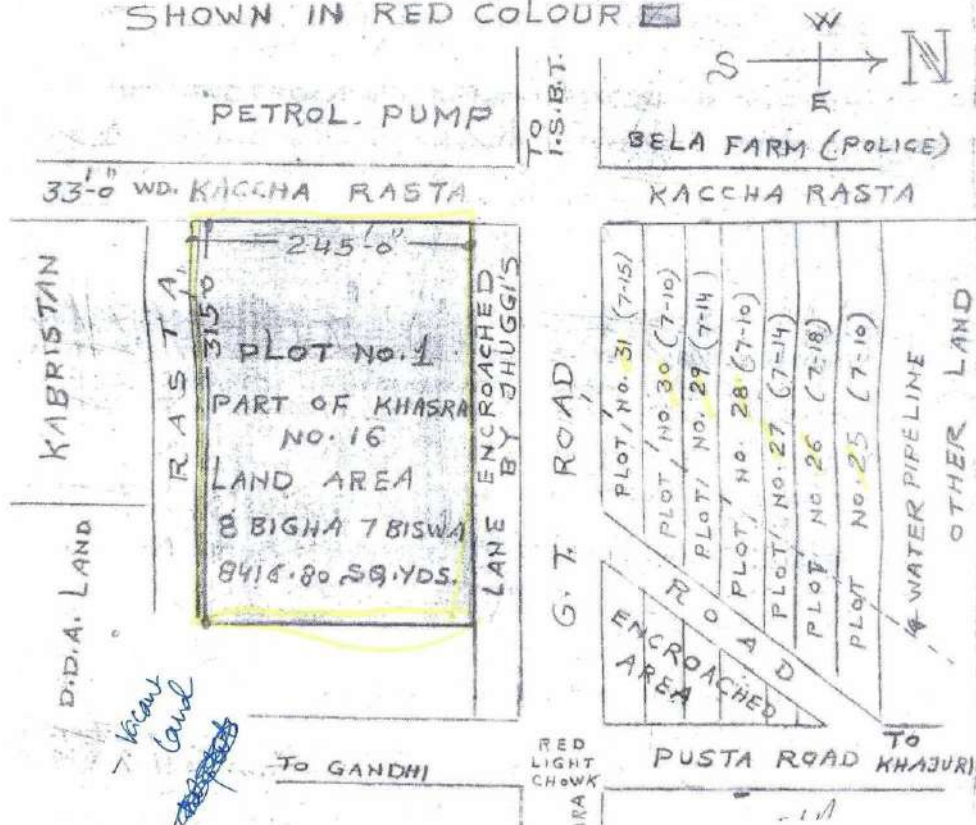 SHOWN IN RED COLOUR
W
S
N
E
PETROL. PUMP
TO I.S.B.T.
BELA FARM (POLICE)
33'-0" WD. KACCHA RASTA
KACCHA RASTA
KABRISTAN
D.D.A. LAND
RASTA
245'-0"
315'-0"
PLOT NO. 1
PART OF KHASRA
NO. 16
LAND AREA
8 BIGHA 7 BISWA
SQ.YDS.
LANE ENCROACHED
BY JHUGGI'S
G.T. ROAD
PLOT, NO. 31 (7-15)
PLOT, NO. 30 (7-10)
PLOT, NO. 29 (7-14)
PLOT, NO. 28 (7-10)
PLOT, NO. 27 (7-14)
PLOT, NO 26 (7-18)
PLOT NO. 25 (7-10)
WATER PIPELINE
OTHER LAND
ROAD
ENCROACHED
AREA
Vacant
land
TO GANDHI
RED
LIGHT
CHOWK
PUSTA ROAD
TO
KHAJURI